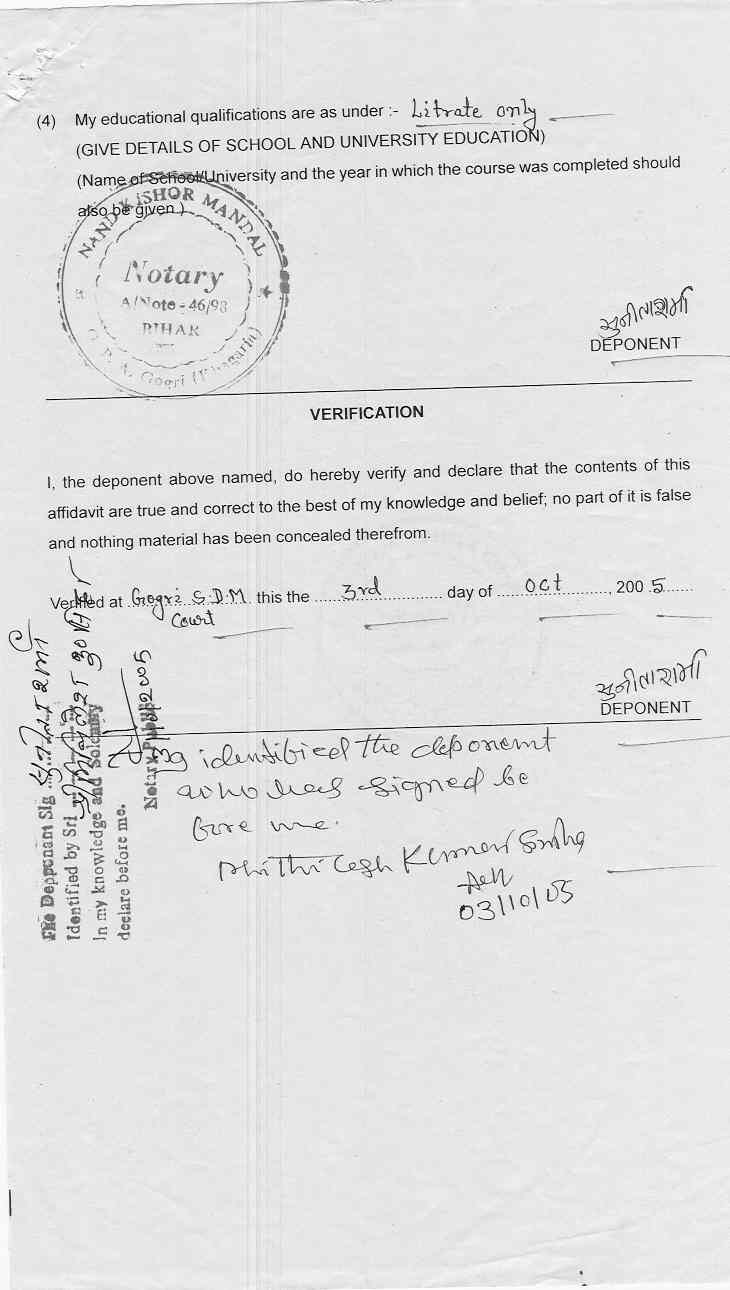 (4) My educational qualifications are as under :- Litrate only
(GIVE DETAILS OF SCHOOL AND UNIVERSITY EDUCATION)
(Name of School/University and the year in which the course was completed should
also be given.)
NAND KISHOR MANDAL
Notary
A/Note - 46/98
BIHAR
Gogri (Khagaria)
सुनीता शर्मा
DEPONENT
VERIFICATION
I, the deponent above named, do hereby verify and declare that the contents of this
affidavit are true and correct to the best of my knowledge and belief; no part of it is false
and nothing material has been concealed therefrom.
Verified at Gogri S.D.M. this the 3rd day of Oct, 2005
Court
सुनीता शर्मा
DEPONENT
The Deppunant Sig सुनीता शर्मा
Identified by Sri
In my knowledge and Solemnly
declare before me.
Notary Public
I identified the deponent
who has signed be
fore me.
Kumar Sinha
Adv
03/10/05